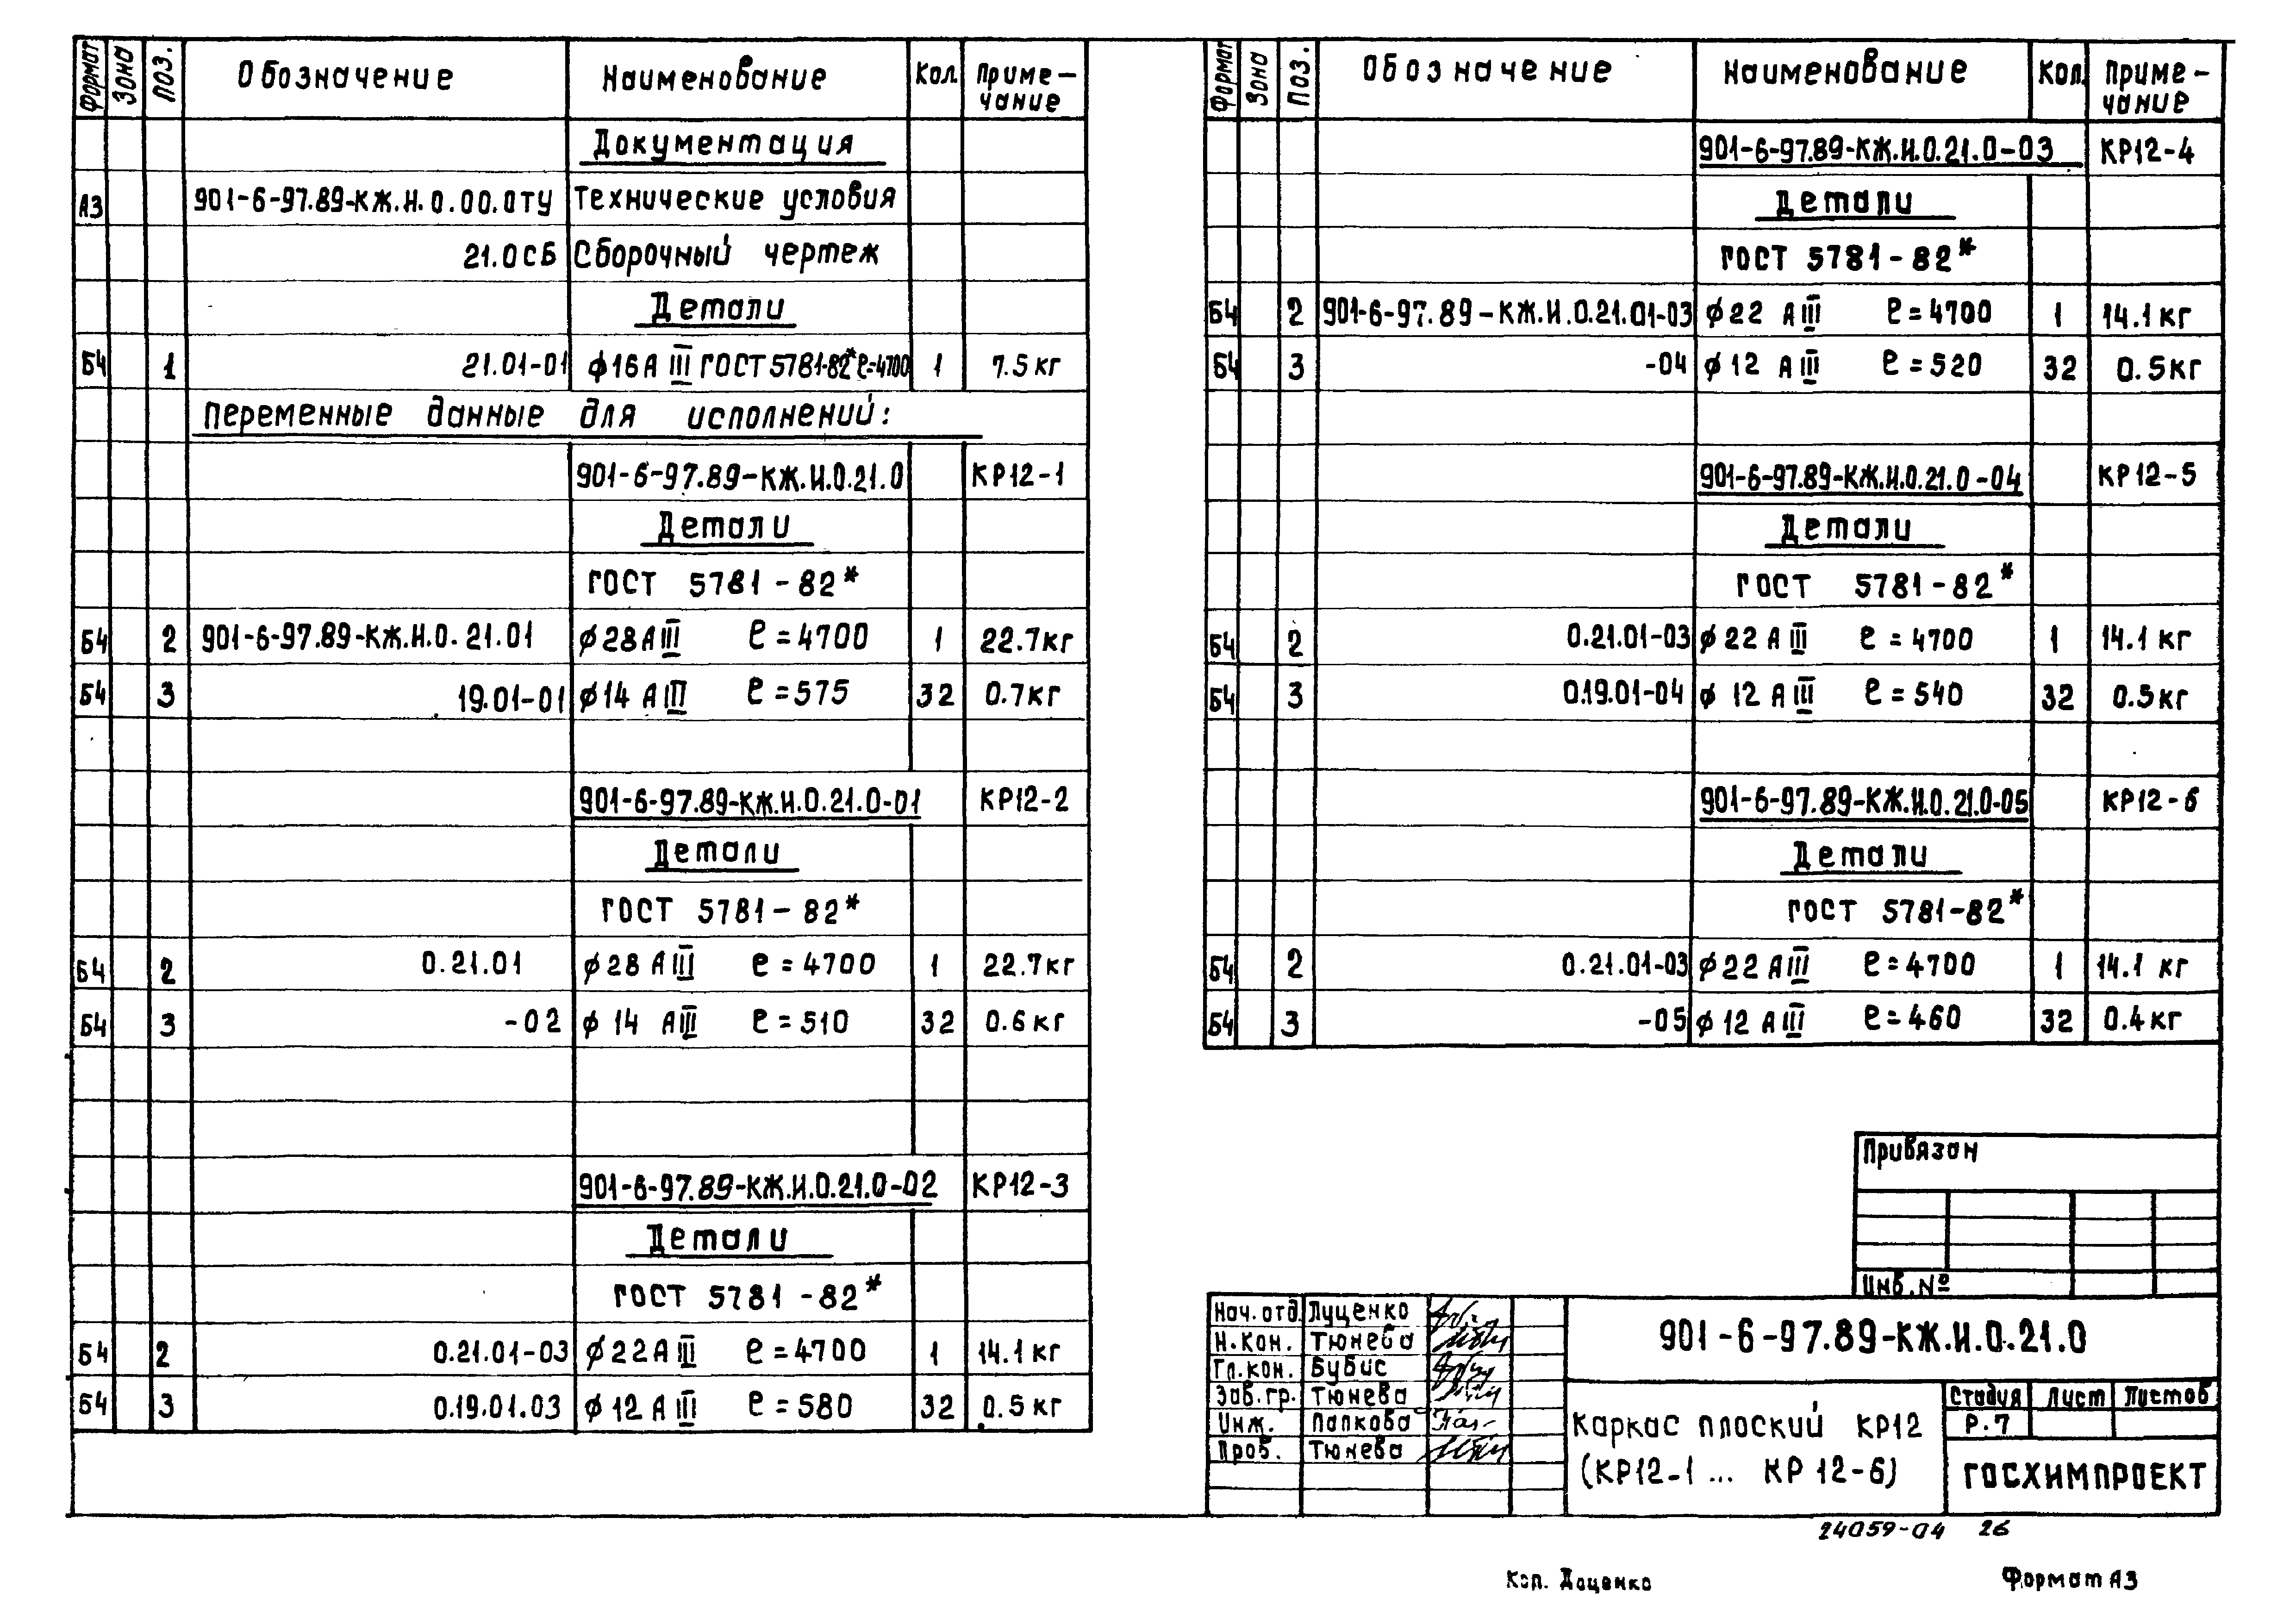 Формат Зона Поз. Обозначение Наименование Кол. Приме-чание
Документация
А3 901-6-97.89-КЖ.И.0.00.0ТУ Технические условия
21.0СБ Сборочный чертеж
Детали
Б4 1 21.01-01 ϕ16АIII ГОСТ 5781-82* ℓ=4700 1 7.5кг
Переменные данные для исполнений:
901-6-97.89-КЖ.И.0.21.0 КР12-1
Детали
ГОСТ 5781-82*
Б4 2 901-6-97.89-КЖ.И.0.21.01 ϕ28АIII ℓ=4700 1 22.7кг
Б4 3 19.01-01 ϕ14 АIII ℓ=575 32 0.7кг
901-6-97.89-КЖ.И.0.21.0-01 КР12-2
Детали
ГОСТ 5781-82*
Б4 2 0.21.01 ϕ28 АIII ℓ=4700 1 22.7кг
Б4 3 -02 ϕ14 АIII ℓ=510 32 0.6кг
901-6-97.89-КЖ.И.0.21.0-02 КР12-3
Детали
ГОСТ 5781-82*
Б4 2 0.21.01-03 ϕ22АIII ℓ=4700 1 14.1кг
Б4 3 0.19.01.03 ϕ12АIII ℓ=580 32 0.5кг
Формат Зона Поз. Обозначение Наименование Кол. Приме-чание
901-6-97.89-КЖ.И.0.21.0-03 КР12-4
Детали
ГОСТ 5781-82*
Б4 2 901-6-97.89-КЖ.И.0.21.01-03 ϕ22 АIII ℓ=4700 1 14.1кг
Б4 3 -04 ϕ12 АIII ℓ=520 32 0.5кг
901-6-97.89-КЖ.И.0.21.0-04 КР12-5
Детали
ГОСТ 5781-82*
Б4 2 0.21.01-03 ϕ22 АIII ℓ=4700 1 14.1кг
Б4 3 0.19.01-04 ϕ12 АIII ℓ=540 32 0.5кг
901-6-97.89-КЖ.И.0.21.0-05 КР12-6
Детали
ГОСТ 5781-82*
Б4 2 0.21.01-03 ϕ22АIII ℓ=4700 1 14.1 кг
Б4 3 -05 ϕ12 АIII ℓ=460 32 0.4кг
Привязан
Инв. №
Нач. отд. Луценко
Н.кон. Тюнева
Гл.кон. Бубис
Зав.гр. Тюнева
Инж. Папкова
Пров. Тюнева
901-6-97.89-КЖ.И.0.21.0
Каркас плоский КР12
(КР12-1 ... КР12-6)
Стадия Лист Листов
Р.7
ГОСХИМПРОЕКТ
24059-04 26
Коп. Доценко Формат А3